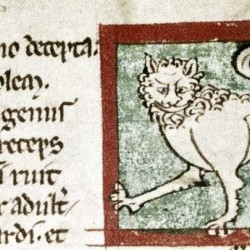 no decepta:
plean.
genius
receps
i ruit
r adult
ardi. et